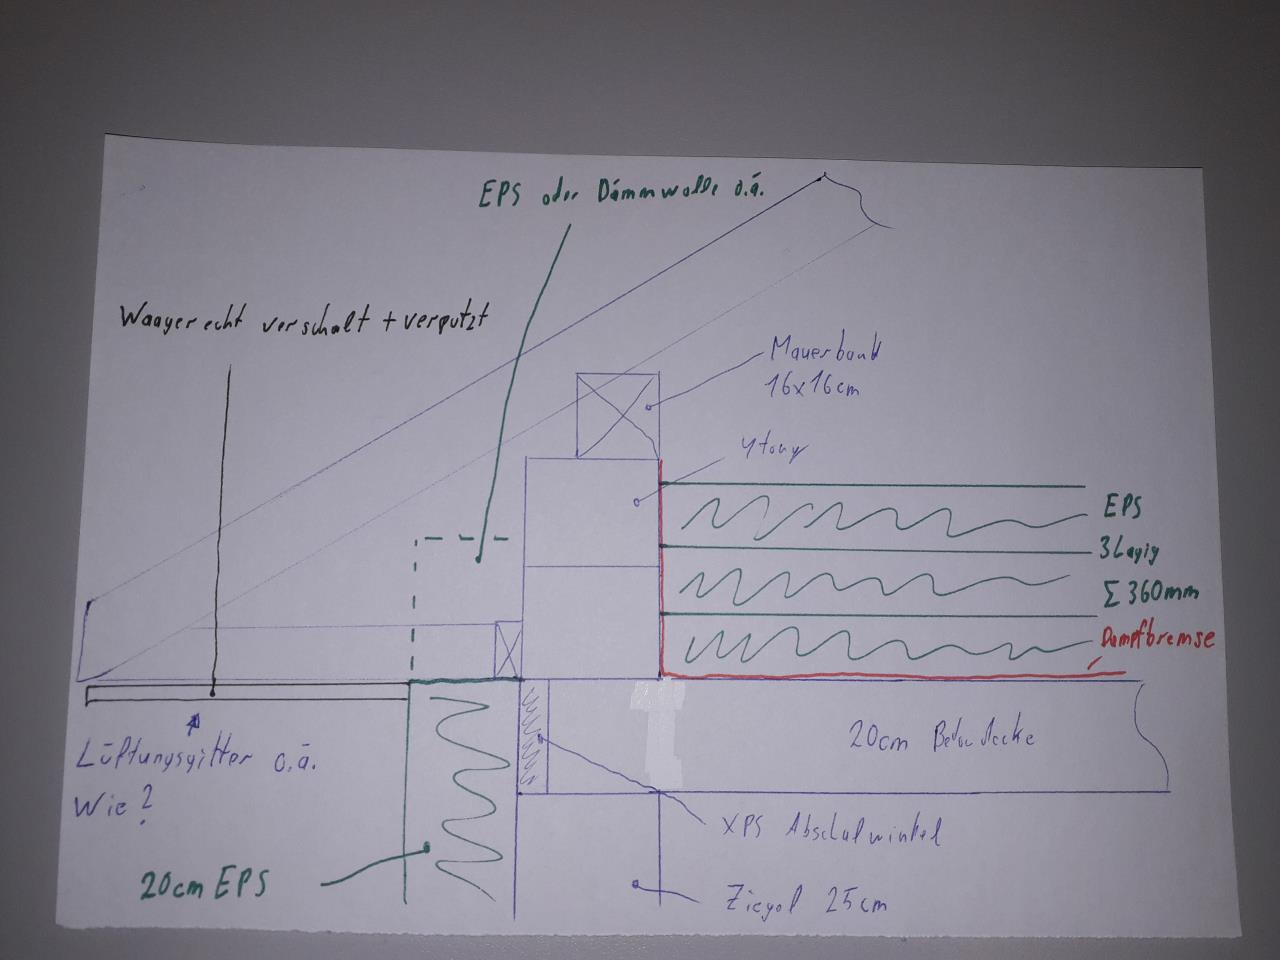 EPS oder Dämmwolle o.ä.
Waagerecht verschalt + verputzt
Mauerbank
16x16cm
Ytong
EPS
3lagig
Σ 360mm
Dampfbremse
20cm Betondecke
Lüftungsgitter o.ä.
Wie?
XPS Abschalwinkel
20cm EPS
Ziegel 25cm